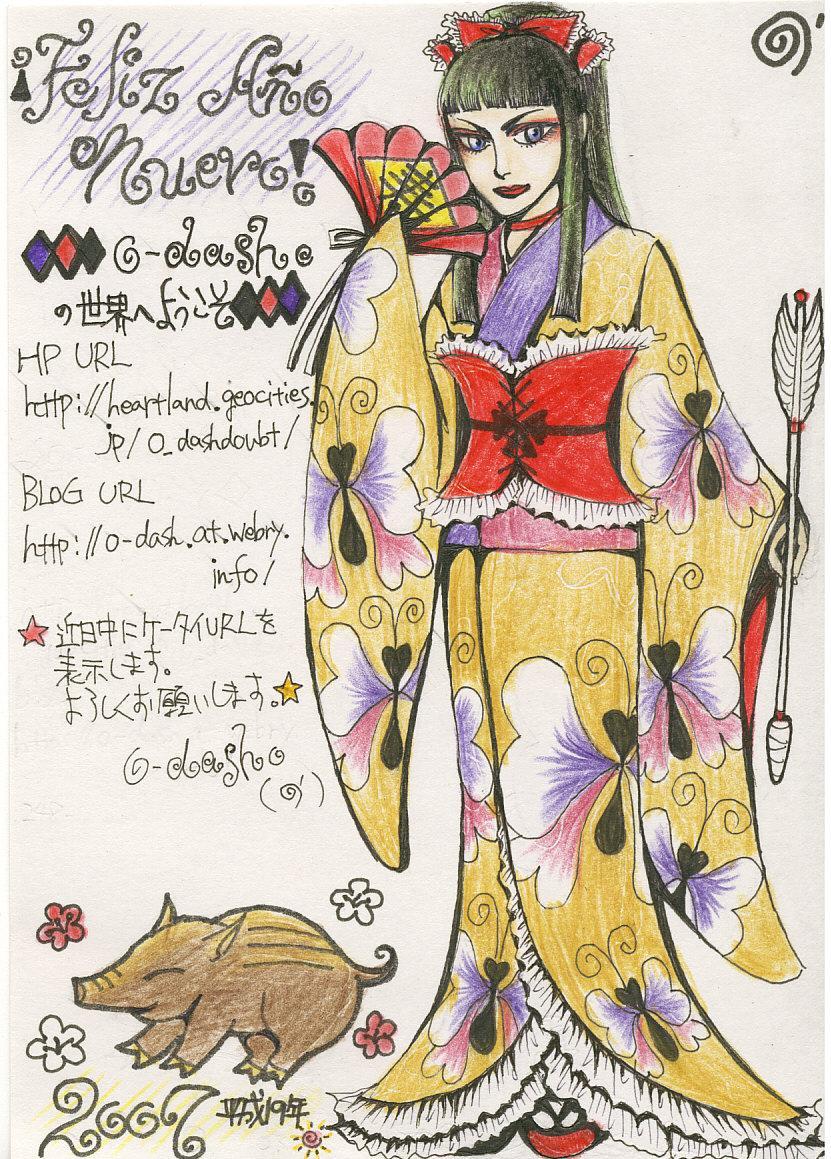 ¡Feliz Año
Nuevo!
o-dash。
の世界へようこそ
HP URL
http://heartland.geocities.
jp/o_dashdoubt/
BLOG URL
http://o-dash.at.webry.
info/
近日中にケータイURLを
表示します。
よろしくお願いします。
o-dash。
2007 平成19年